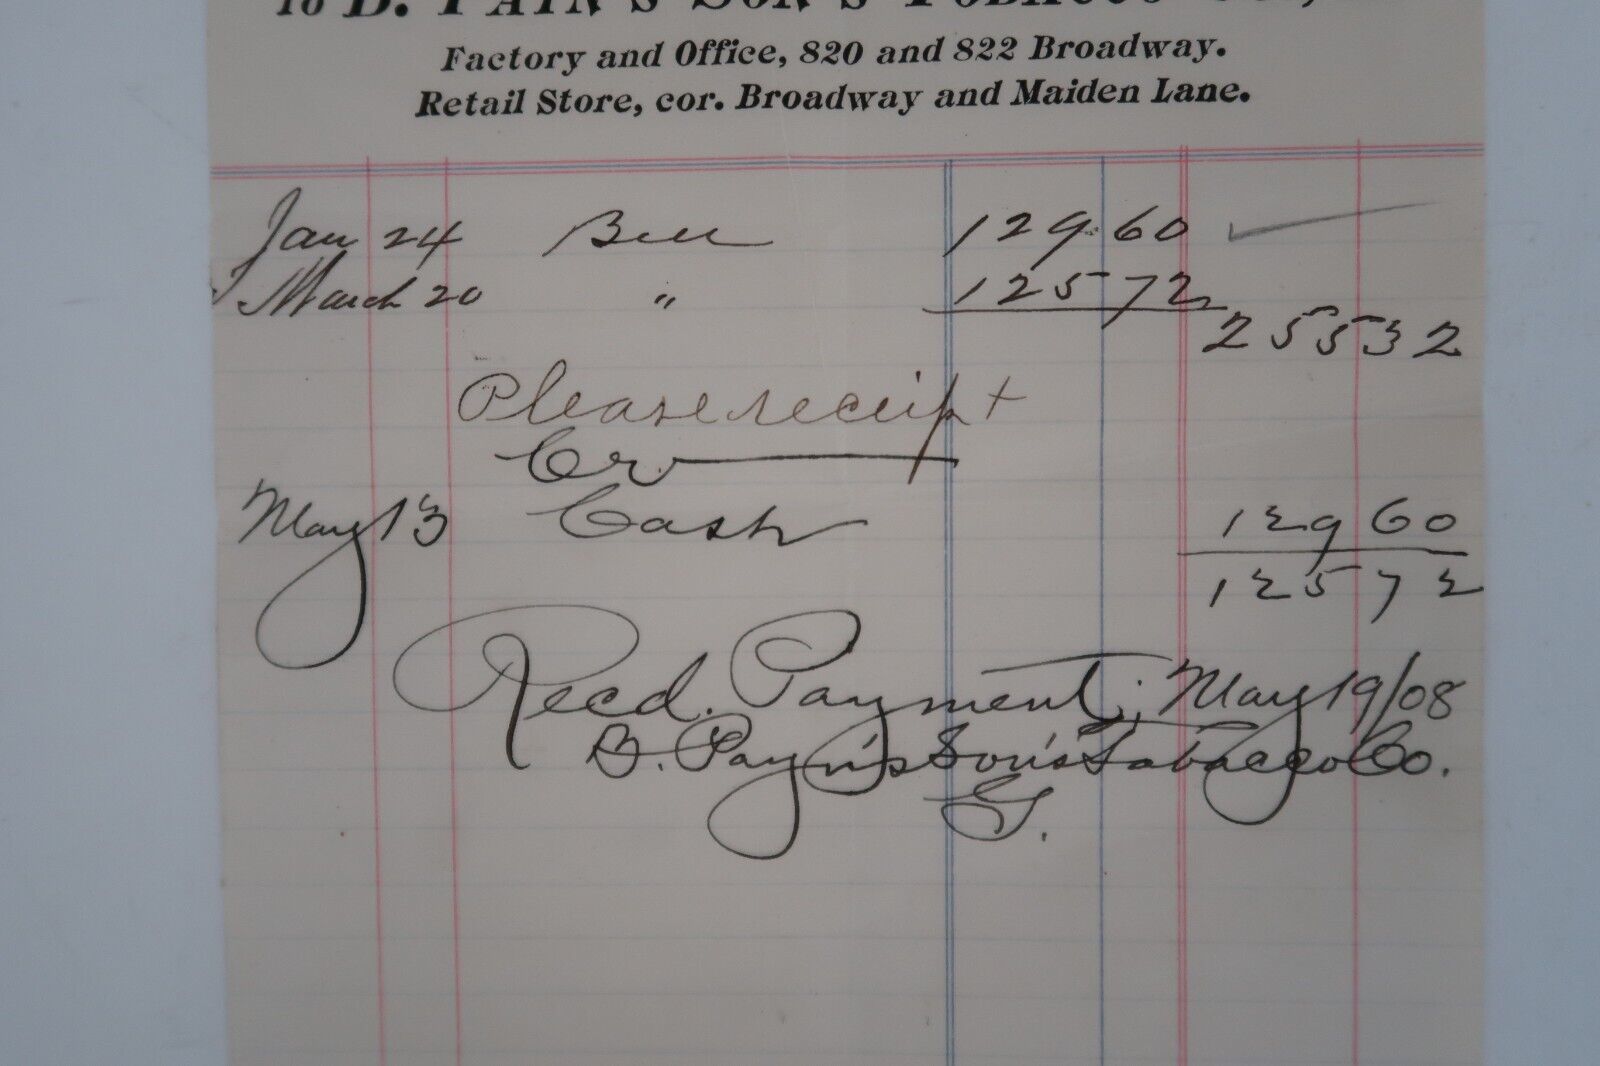 To B. PAYN'S SON'S TOBACCO
Factory and Office, 820 and 822 Broadway.
Retail Store, cor. Broadway and Maiden Lane.
Jan 24 Bill 129.60
March 20 " 125 72
255 32
Please receipt
Cr
May 13 Cash 129 60
125 72
Recd. Payment, May 19/08
B. Payn's Son's Tobacco Co.
G.